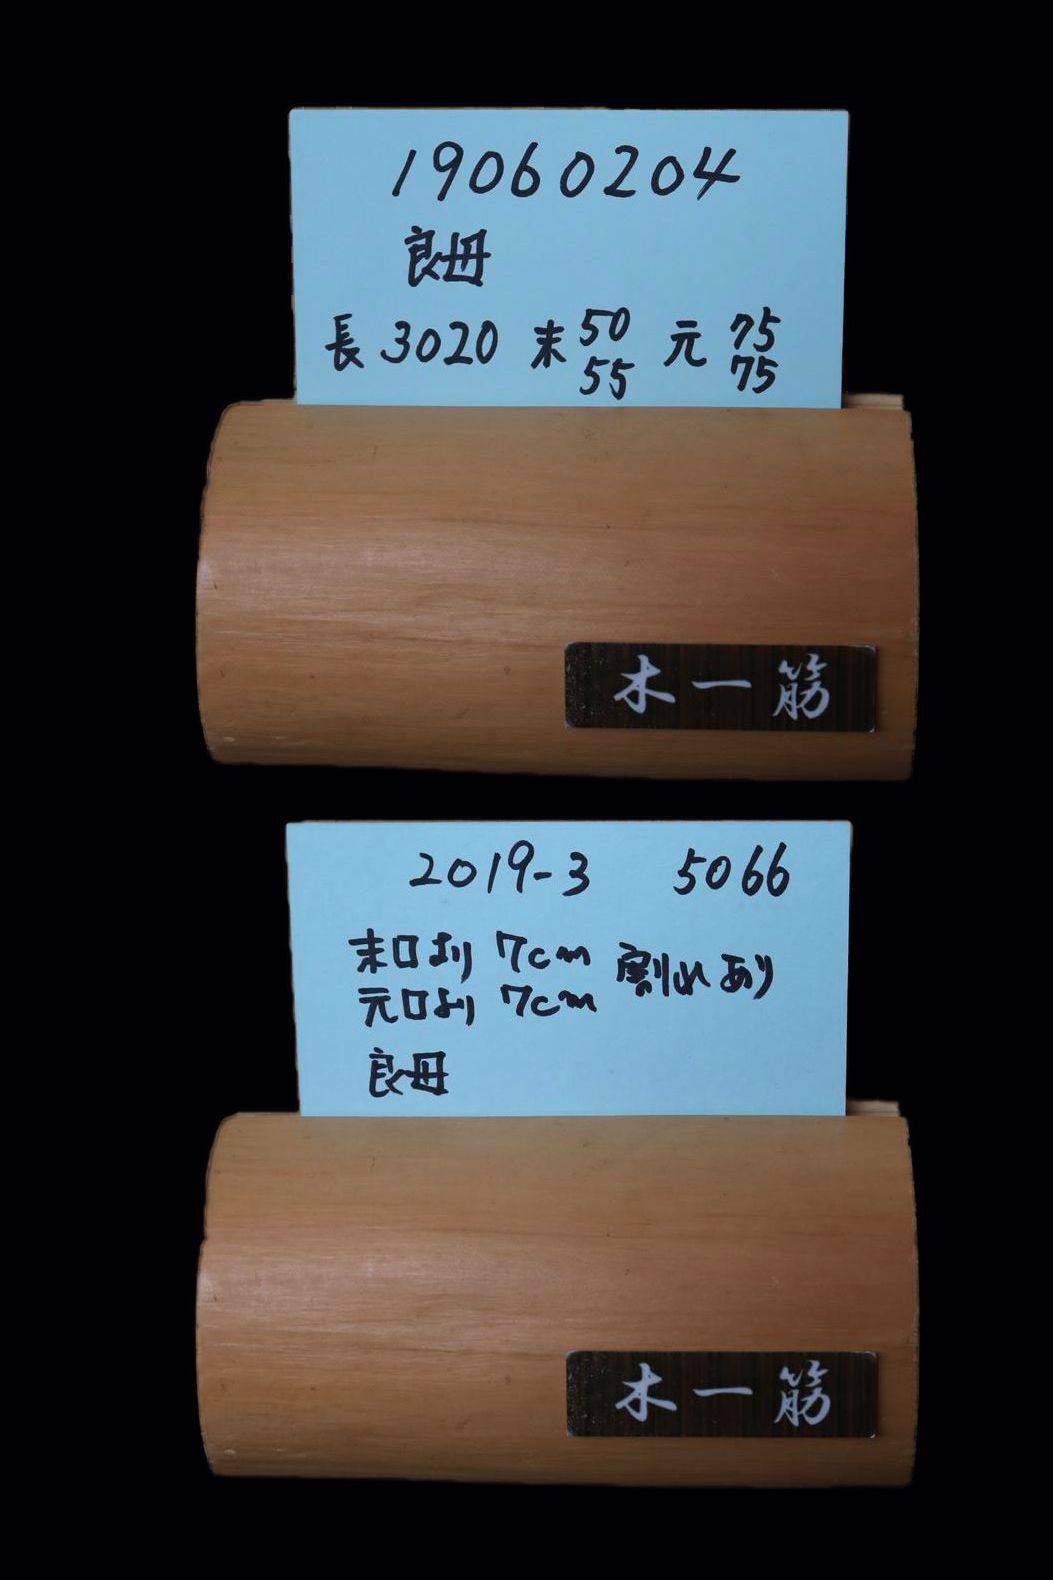 19060204
良母
長3020 末50 55 元75 75
木一筋
2019-3 5066
末口より 7cm 割れあり
元口より 7cm
良母
木一筋